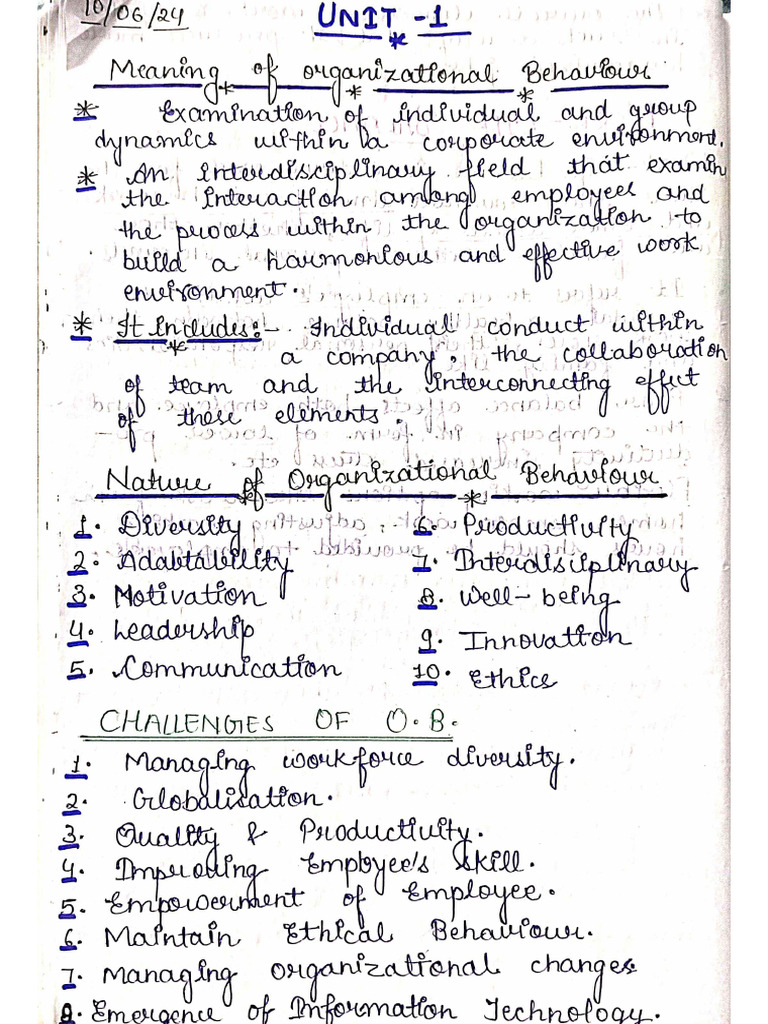 10/06/24
UNIT - 1
Meaning of organizational Behaviour
* Examination of individual and group
dynamics within a corporate environment.
* An interdisciplinary field that examin
the interaction among employees and
the process within the organization to
build a harmonious and effective work
environment.
* It includes:- Individual conduct within
a company, the collaboration
of team and the interconnecting effect
of these elements.
Nature of Organizational Behaviour
1. Diversity
2. Adaptability
3. Motivation
4. Leadership
5. Communication
6. Productivity
7. Interdisciplinary
8. Well-being
9. Innovation
10. Ethics
CHALLENGES OF O.B.
1. Managing workforce diversity.
2. Globalisation.
3. Quality & Productivity.
4. Improving Employee's skill.
5. Empowerment of Employee.
6. Maintain Ethical Behaviour.
7. Managing organizational changes
8. Emergence of Information Technology.